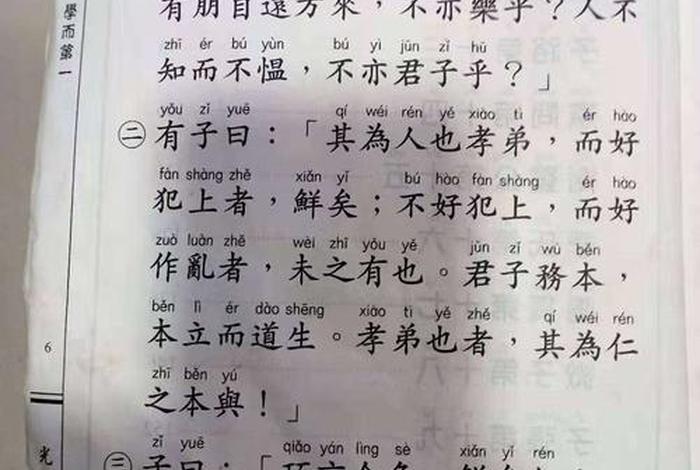 學而第一
有朋自遠方來，不亦樂乎？人不
zhī ér bú yùn bú yì jūn zǐ hū
知而不慍，不亦君子乎？」
yǒu zǐ yuē qí wéi rén yě xiào tì ér hào
㊁有子曰：「其為人也孝弟，而好
fàn shàng zhě xiǎn yǐ bú hào fàn shàng ér hào
犯上者，鮮矣；不好犯上，而好
zuò luàn zhě wèi zhī yǒu yě jūn zǐ wù běn
作亂者，未之有也。君子務本，
běn lì ér dào shēng xiào tì yě zhě qí wéi rén
本立而道生。孝弟也者，其為仁
zhī běn yú
之本與！」
zǐ yuē qiǎo yán lìng sè xiǎn yǐ rén
㊂子曰：「巧言令色，鮮矣
6
光